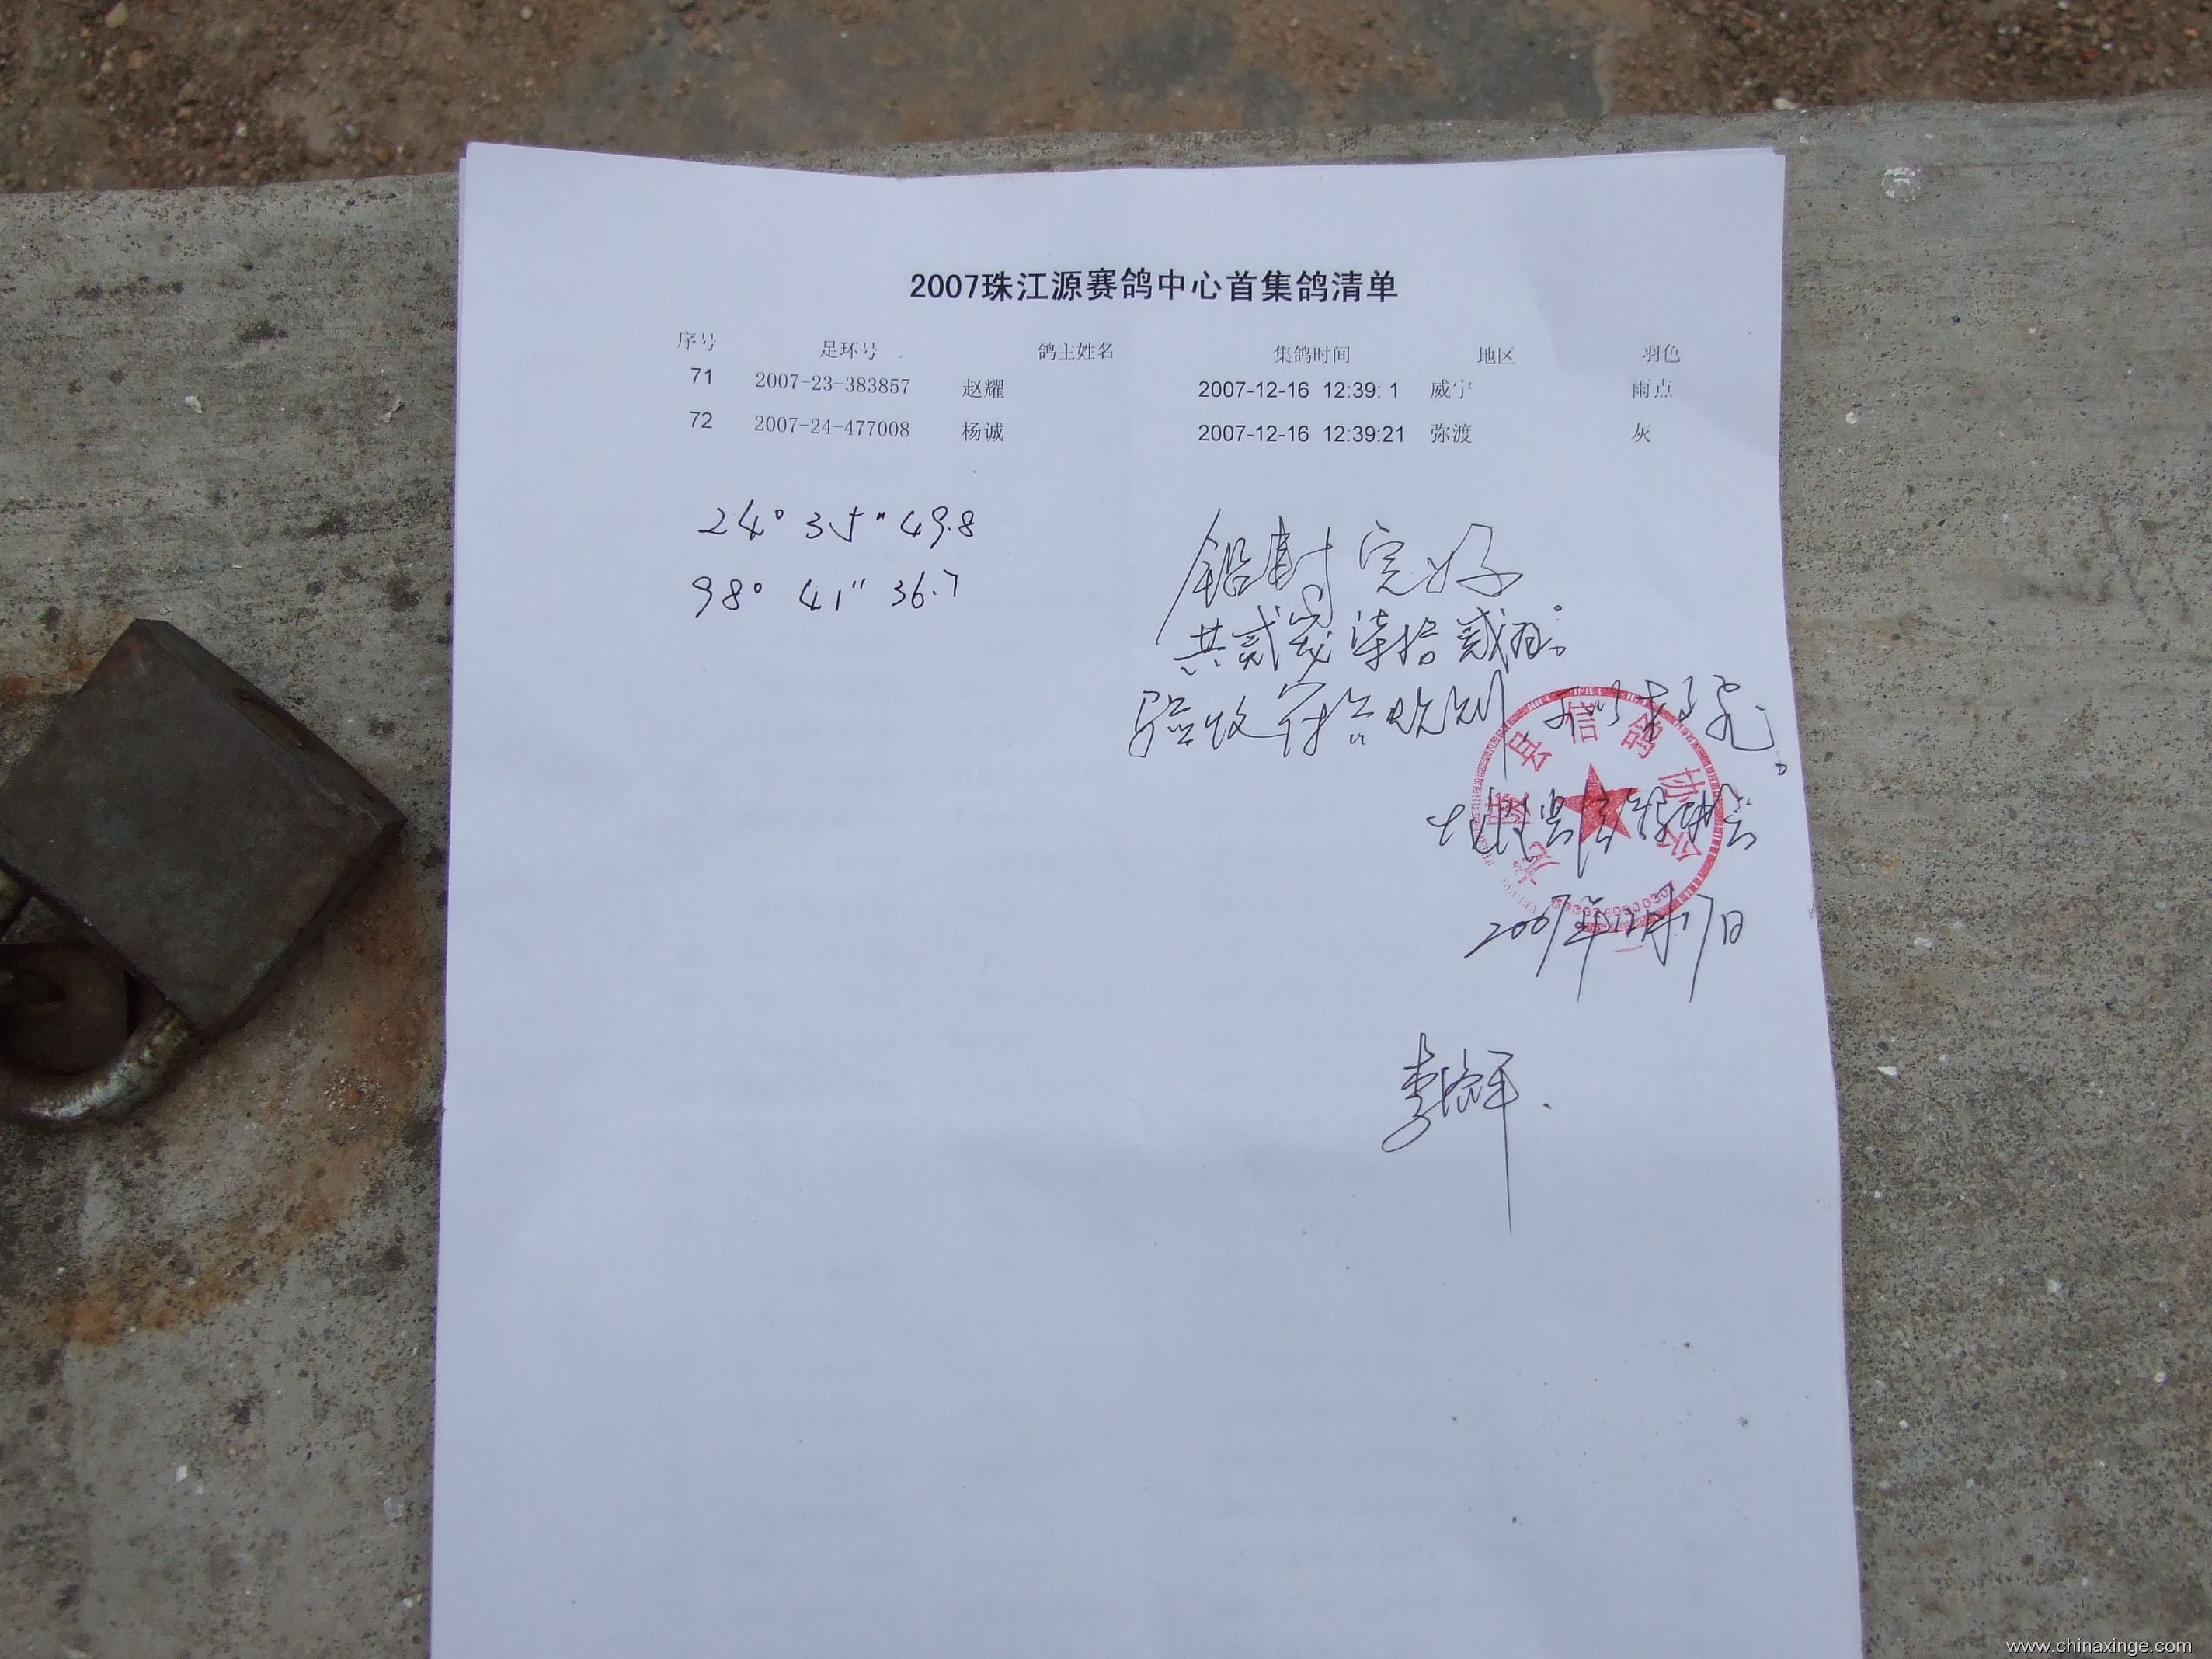 2007珠江源赛鸽中心首集鸽清单
序号 足环号 鸽主姓名 集鸽时间 地区 羽色
71 2007-23-383857 赵耀 2007-12-16 12:39: 1 威宁 雨点
72 2007-24-477008 杨诚 2007-12-16 12:39:21 弥渡 灰
24° 35" 49.8
98° 41" 36.7
铅封完好
共贰 柒拾贰羽。
验收符合规则
县信鸽协会
2007年12月17日
李 军
www.chinaxinge.com